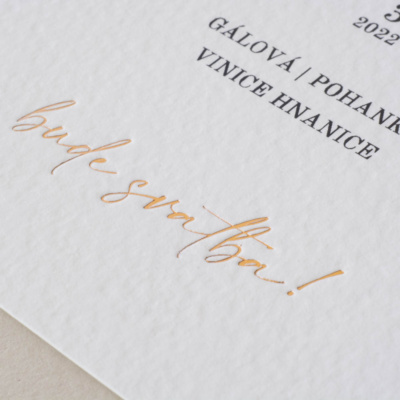 2022
GÁLOVÁ | POHANK
VINICE HNANICE
bude svatba!